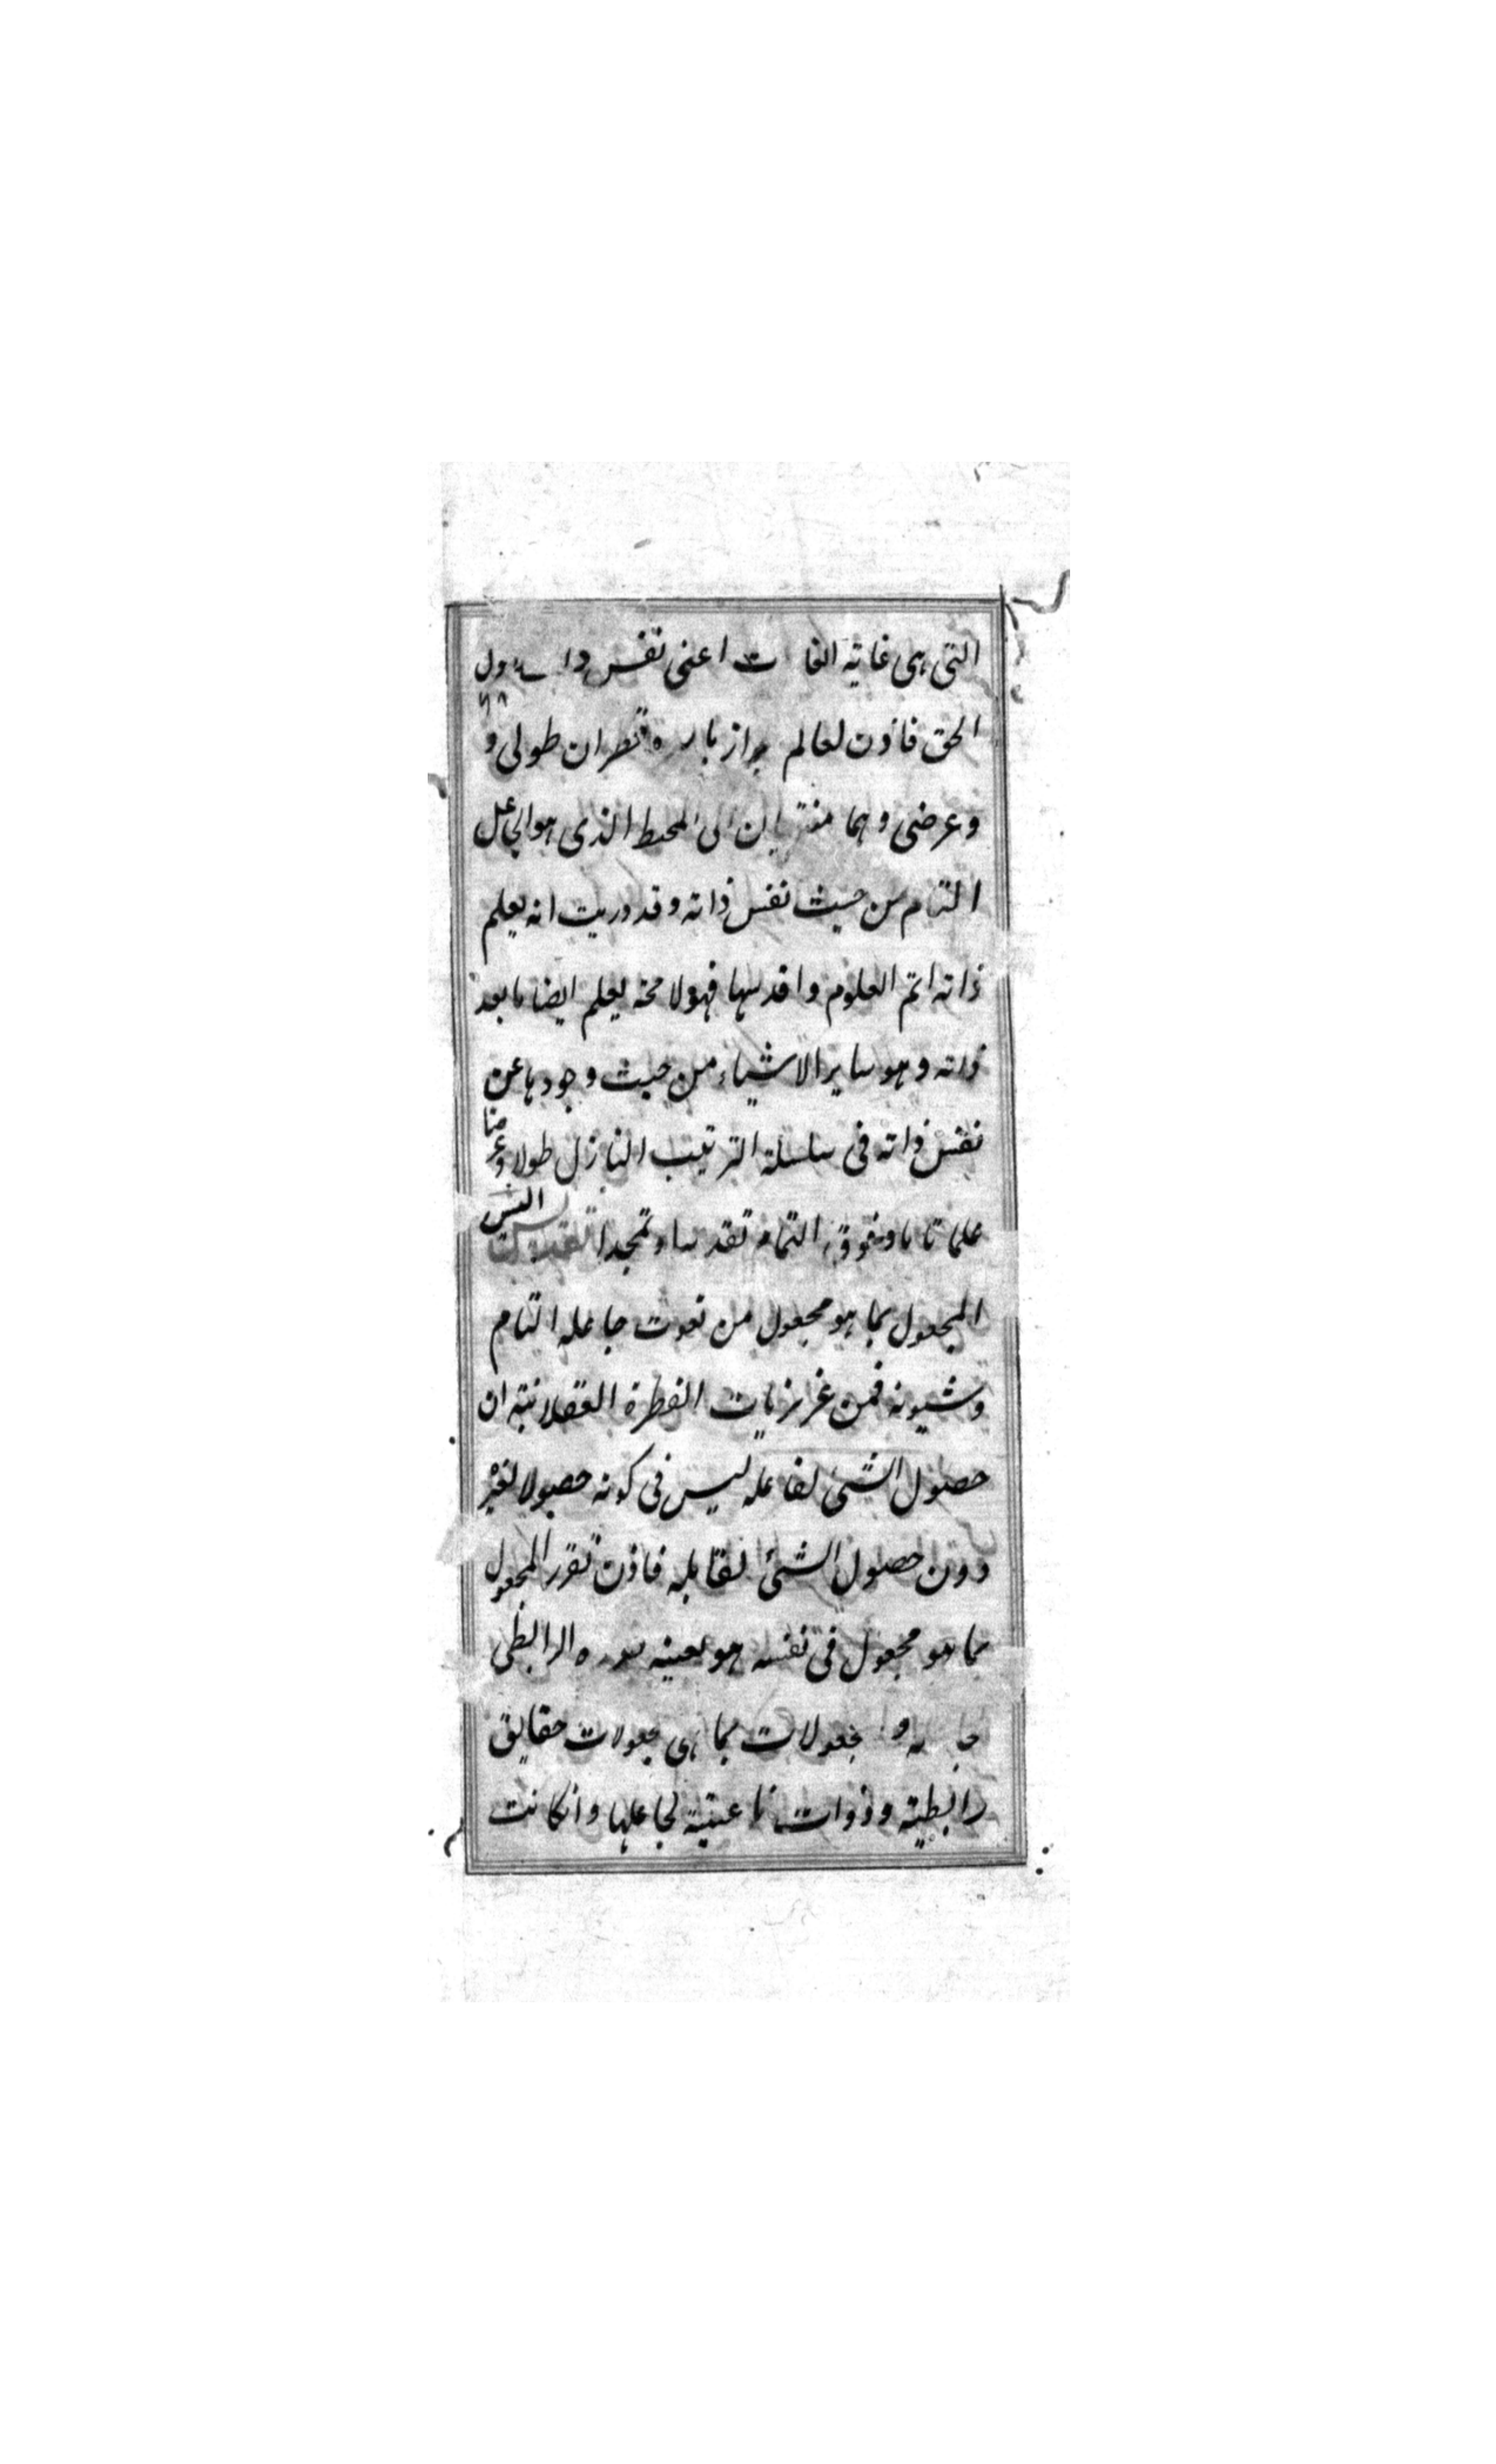 التى هى غاية الغا ت اعنى نفس ول
الحق فاذن لعالم باره قطران طولى و
وعرضى وهما منتهيان الى المحيط الذى هو الجاعل
التام من حيث نفس ذاته وقد دريت انه يعلم
ذاته اتم العلوم واقدسها فهو لا محة يعلم ايضا ما بعد
ذاته وهو ساير الاشياء من حيث وجودها عن
نفس ذاته فى سلسلة الترتيب النازل طولا وعرضا
علما تاما وفوق التمام تقدسا وتمجدا تقديس اليس
المجعول بما هو مجعول من نعوت جاعله التام
وشيونه فمن غريزيات الفطرة العقلانية ان
حصول الشئ لفاعله ليس فى كونه حصولا لغيره
دون حصول الشئ لقابله فاذن تقرر المجعول
بما هو مجعول فى نفسه هو بعينه الرابطى
و جعولات بما هى جعولات حقايق
رابطية وذوات ناعتية لجاعلها وانكانت